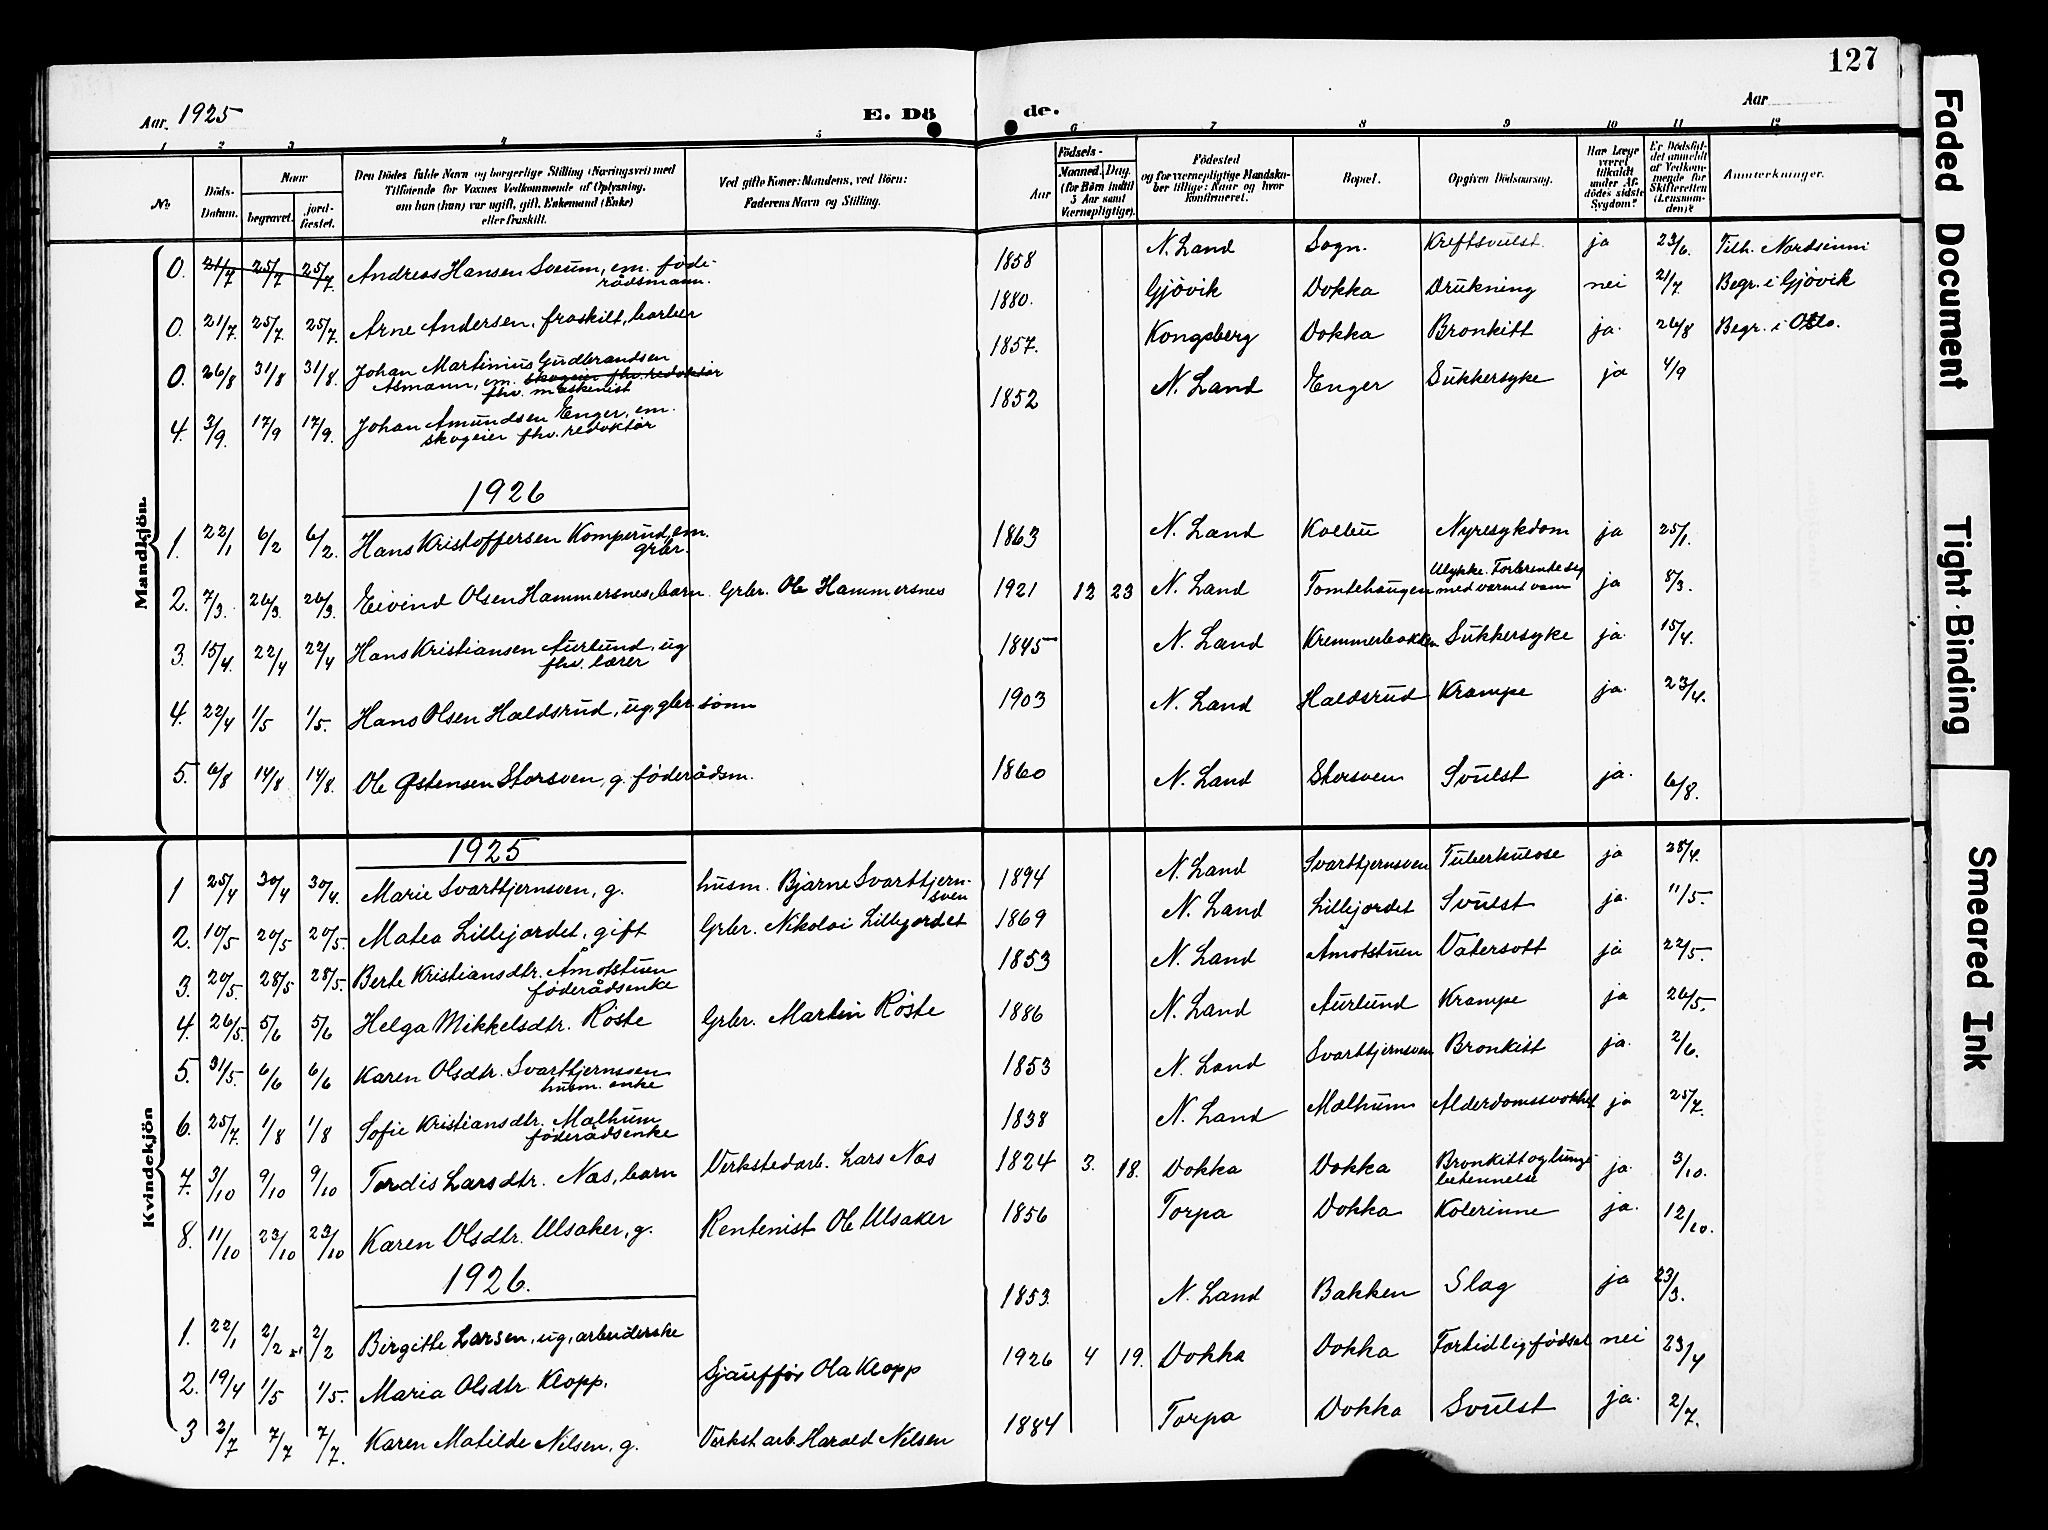 127
Aar. 1925
E. Dö
de.
Aar
1 2 3 4 5 6 7 8 9 10 11 12
No
Döds-
Datum.
Naar
begravet.
jord-
fæstet.
Den Dödes fulde Navn og borgerlige Stilling (Næringsvei) med
Tilföiende for Voxnes Vedkommende af Oplysning,
om hun (han) var ugift, gift, Enkemand (Enke)
eller fraskilt.
Ved gifte Koner: Mandens, ved Börn:
Faderens Navn og Stilling.
Födsels-
Aar
Maaned. Dag.
(for Börn indtil
5 Aar samt
Værnepligtige).
Födested
og for værnepligtige Mandska-
ber tillige: Naar og hvor
konfirmeret.
Bopæl.
Opgiven Dödsaarsag.
Har Læge
været
tilkaldt
under Af-
dödes sidste
Sygdom?
Er Dödsfal-
det anmeldt
af Vedkom-
mende for
Skifteretten
(Lensman-
den)?
Anmærkninger.
Mandkjön.
0. 21/7 25/7 25/7. Andreas Hansen Sveum, em. føde-
rådsmann. 1858 N. Land Sogn. Kreftsvulst. ja 23/6. Tilh. Nordsinni
0. 21/7. 25/7. 25/7. Arne Andersen, fraskilt, barber 1880. Gjövik Dokka Drukning nei 21/7 Begr. i Gjövik
0. 26/8 31/8 31/8. Johan Martinius Gudbrandsen
Asmann, em. skogeier fhv. redaktør
fhv. maskenist 1857. Kongsberg Dokka Bronkitt ja. 26/8 Begr. i Oslo.
4. 3/9. 17/9 17/9. Johan Amundsen Enger, em.
skogeier fhv. redaktør 1852 N. Land Enger Sukkersyke ja 4/9
1926
1. 22/1 6/2 6/2. Hans Kristoffersen Komperud, em.
grbr. 1863 N. Land Kolbu Nyresykdom ja 25/1.
2. 7/3. 26/3 26/3. Eivind Olsen Hammersnes, barn Grbr. Ole Hammersnes 1921 12 23 N. Land Tomtehaugen Ulykke. Forbrente sig
med varmt vann ja 8/3.
3. 15/4. 22/4 22/4 Hans Kristiansen Aurlund, ug
fhv. lærer 1845 N. Land Kremmerbakken Sukkersyke ja. 15/4.
4. 22/4 1/5 1/5. Hans Olsen Haldsrud, ug, gbr. sønn 1903 N. Land Haldsrud Krampe ja. 23/4.
5. 6/8 14/8 14/8. Ole Østensen Storsven, g. føderådsm. 1860 N. Land Storsven Svulst ja. 6/8.
Kvindekjön
1925
1 25/4 30/4 30/4. Marie Svarttjernsven, g. husm. Bjarne Svarttjern-
sven 1894 N. Land Svarttjernsven Tuberkulose ja 28/4.
2. 10/5 20/5 20/5. Matea Lillejordet, gift Grbr. Nikolai Lillejordet 1869 N. Land Lillejordet Svulst ja. 11/5.
3. 20/5. 28/5 28/5. Berte Kristiansdtr. Åmotstuen
føderådsenke 1853 N. Land Åmotstuen Vatersott ja 22/5.
4. 26/5. 5/6 5/6 Helga Mikkelsdtr. Röste Grbr. Martin Röste 1886 N. Land Aurlund Krampe ja 26/5.
5. 31/5. 6/6 6/6 Karen Olsdtr. Svarttjernsven
husm. enke 1853 N. Land Svarttjernsven Bronkitt ja. 2/6.
6. 25/7. 1/8 1/8 Sofie Kristiansdtr. Mælhum
føderådsenke 1838 N. Land Mælhum Alderdomssvakhet ja 25/7.
7. 3/10 9/10 9/10 Tordis Larsdtr. Nas, barn Verkstedarb. Lars Nas 1824 3. 18. Dokka Dokka Bronkitt og lunge
betennelse ja. 3/10.
8. 11/10 23/10 23/10 Karen Olsdtr. Ulsaker, g. Rentenist Ole Ulsaker 1856 Torpa Dokka Kolerinne ja. 12/10.
1926.
1. 22/1 2/2 2/2 Birgitte Larsen, ug, arbeiderske 1853. N. Land Bakken Slag ja 23/3.
2. 19/4 1/5 1/5. Maria Olsdtr. Klopp. Sjauffør Ola Klopp 1926 4 19. Dokka Dokka Fortidlig fødsel nei 23/4
3 2/7 7/7 7/7. Karen Matilde Nilsen, g. Verkst.arb. Harald Nilsen 1884 Torpa Dokka Svulst ja. 2/7.
Faded Document
Tight Binding
Smeared Ink